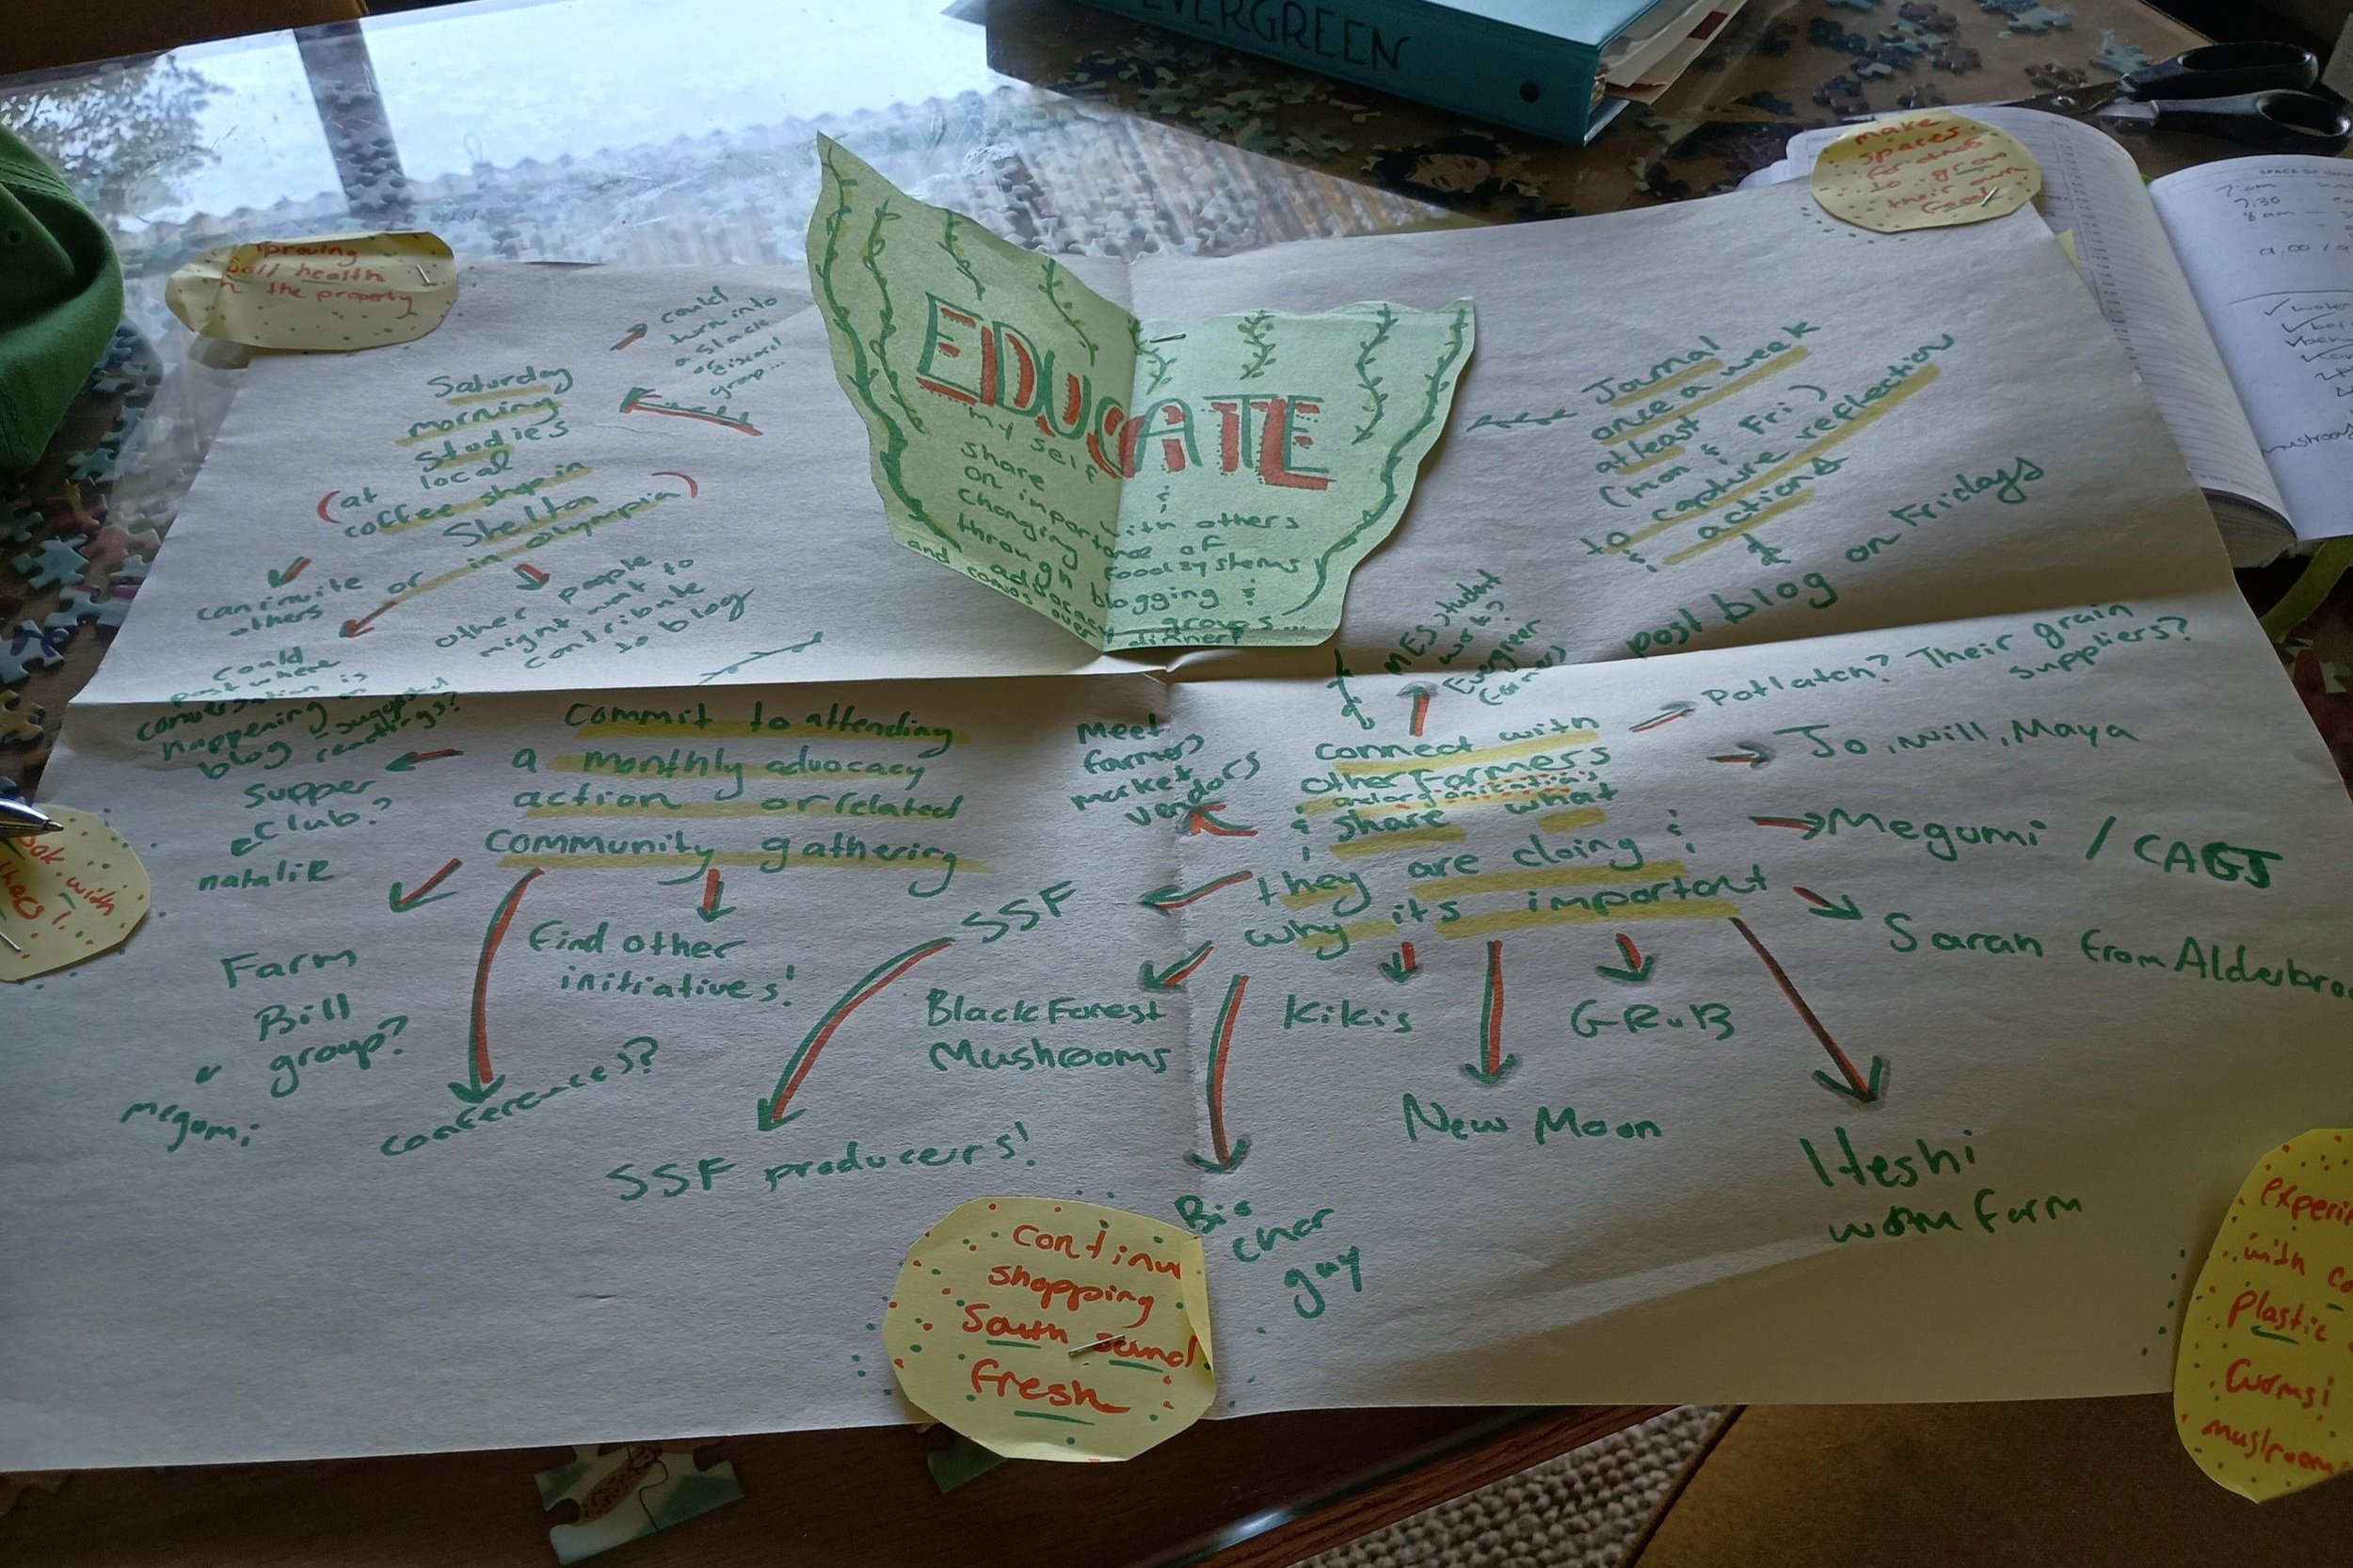 EVERGREEN
make
spaces
for others
to grow
their own
food
proving
soil health
n the property
7:30
could
turn into
a slack
or discord
group...
Saturday
morning
studies
(at local
coffee shop in
Shelton)
or in olympia
can invite
others
other people
might want to
contribute
to blog
could
post where
conversation is
happening on
blog suggested
readings?
EDUCATE
my self &
share with others
on importance of
changing food systems
through blogging &
and advocacy groups...
convos over dinner!
Journal
once a week
at least
(mon & Fri)
to capture reflection
& actions
&
post blog on Fridays
Commit to attending
a monthly advocacy
action or related
community gathering
supper
club?
natalie
Farm
Bill
group?
megumi
conferences?
find other
initiatives!
connect with
other farmers
and organizations
& share what
they are doing &
why its important
MES student
work?
Evergreen
Potlatch? Their grain
suppliers?
Jo, Will, Maya
Megumi / CAGJ
Saran from Alderbroo
Iteshi
worm farm
GRuB
New Moon
Kikis
Bio
char
guy
Black Forest
Mushrooms
SSF
SSF producers!
Meet
farmers
market
vendors
ook with
continu
shopping
South sound
fresh
experi
with co
plastic
worms!
mushroom